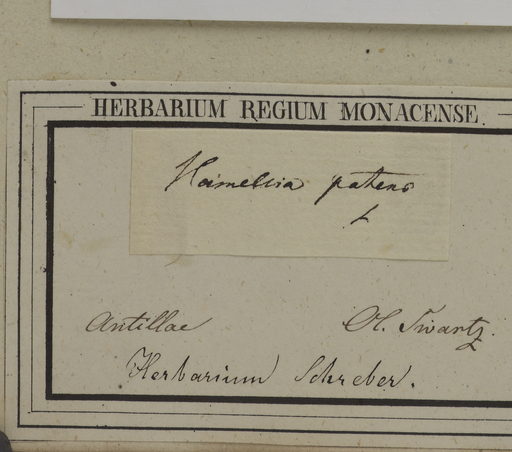 HERBARIUM REGIUM MONACENSE
Hamellia patens
L
Antillae Ol. Swartz.
Herbarium Schreber.